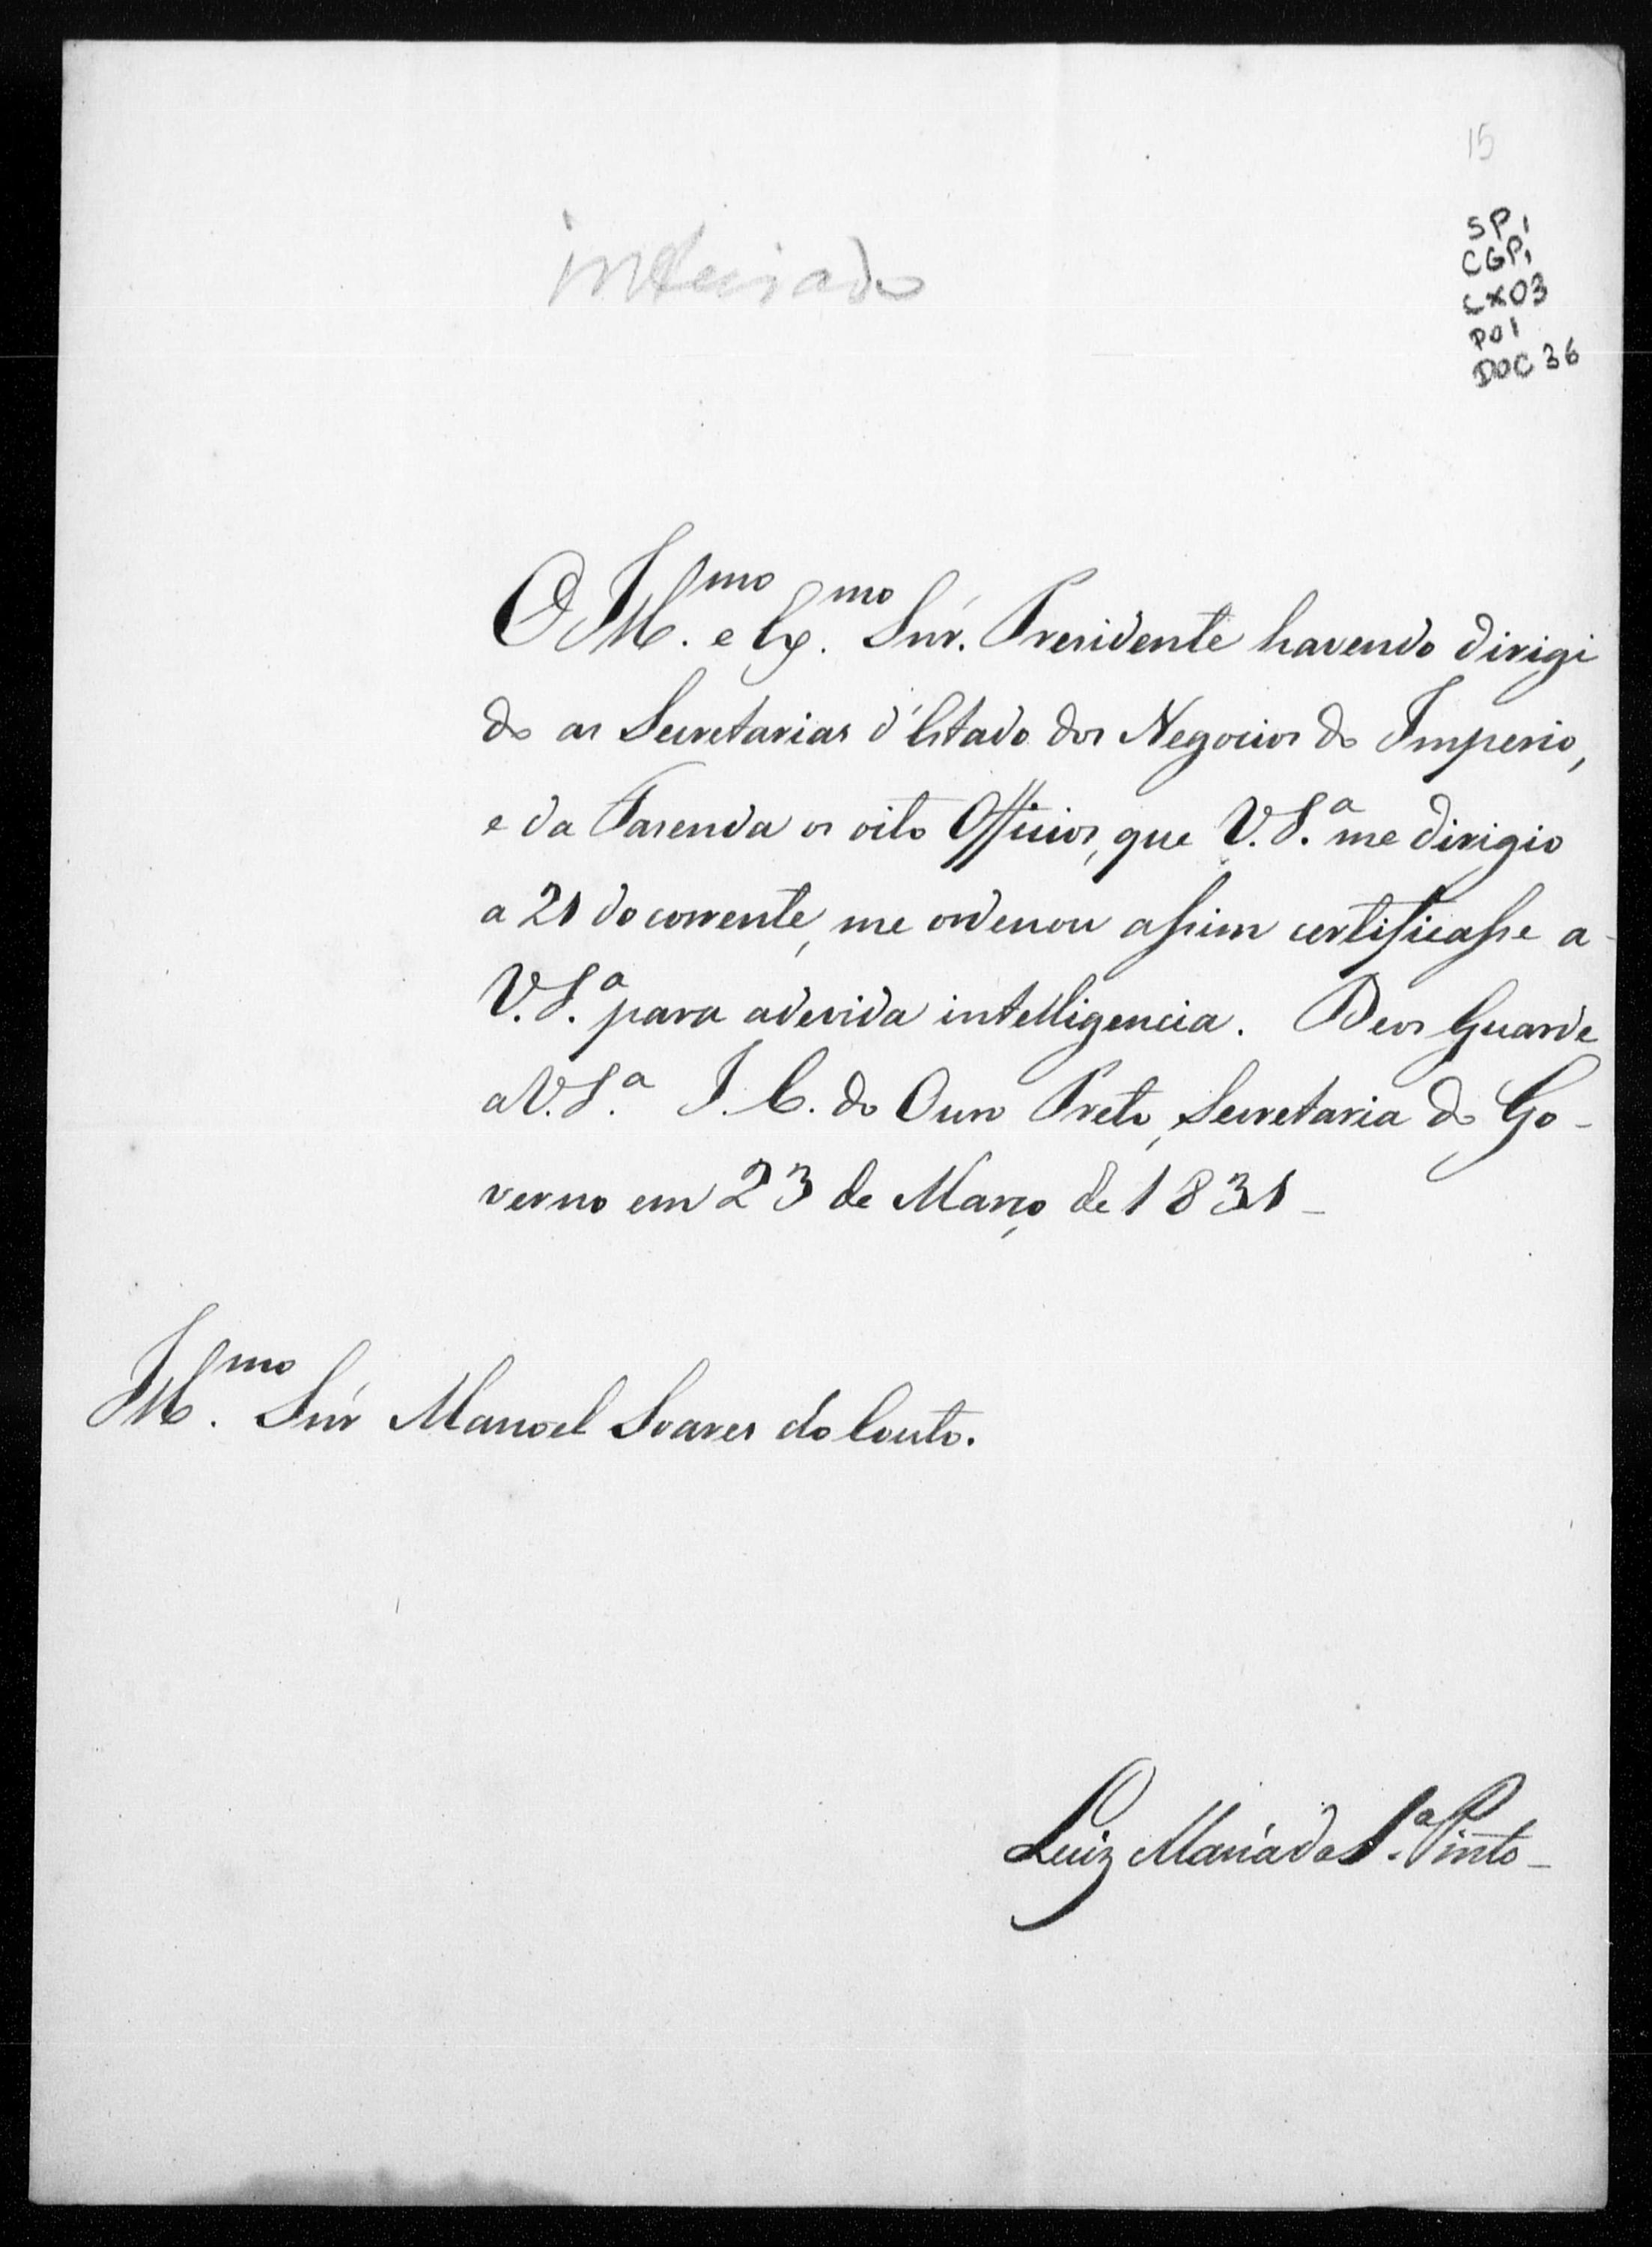 15
SP1
CGP1
CX03
P01
DOC 36
inteirado
O Ill.mo e Ex.mo Snr. Presidente havendo dirigi
do as Secretarias d'Estado dos Negocios do Imperio,
e da Fasenda os oito Officios, que V. S.a me dirigio
a 21 do corrente, me ordenou assim certificasse a-
V. S.a para a devida intelligencia. Deos Guarde
a V. S.a I. C. do Ouro Preto, Secretaria do Go-
verno em 23 de Março de 1831_
Ill.mo Snr Manoel Soares do Couto.
Luiz Maria da S.a Pinto_